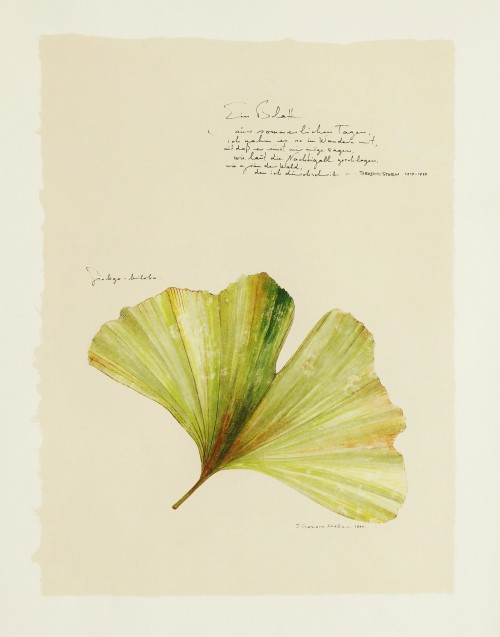 Ein Blatt
aus sommerlichen Tagen,
ich nahm es so im Wandern mit,
auf daß es einst mir möge sagen,
wie laut die Nachtigall geschlagen,
wie grün der Wald,
den ich durchschritt — THEODOR STORM 1817-1888
Ginkgo-biloba